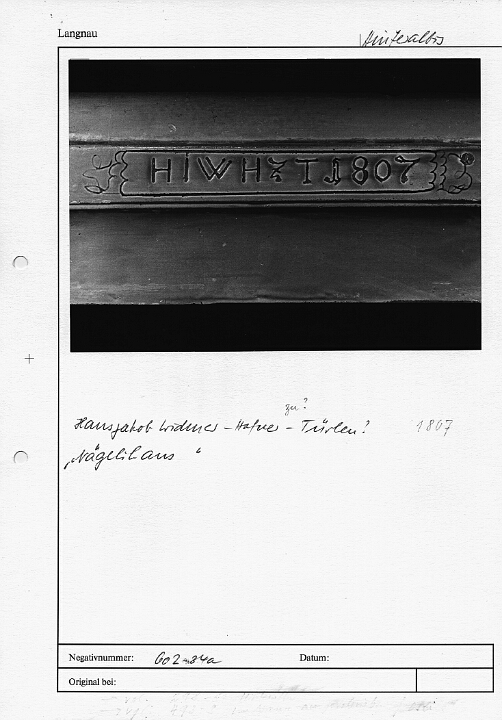 Langnau
Hinteralbis
HIWHZT1807
zu?
Hansjakob Widmer - Hafner - Türlen? 1807
„Nägelihaus"
Negativnummer: 602-34a
Datum:
Original bei: